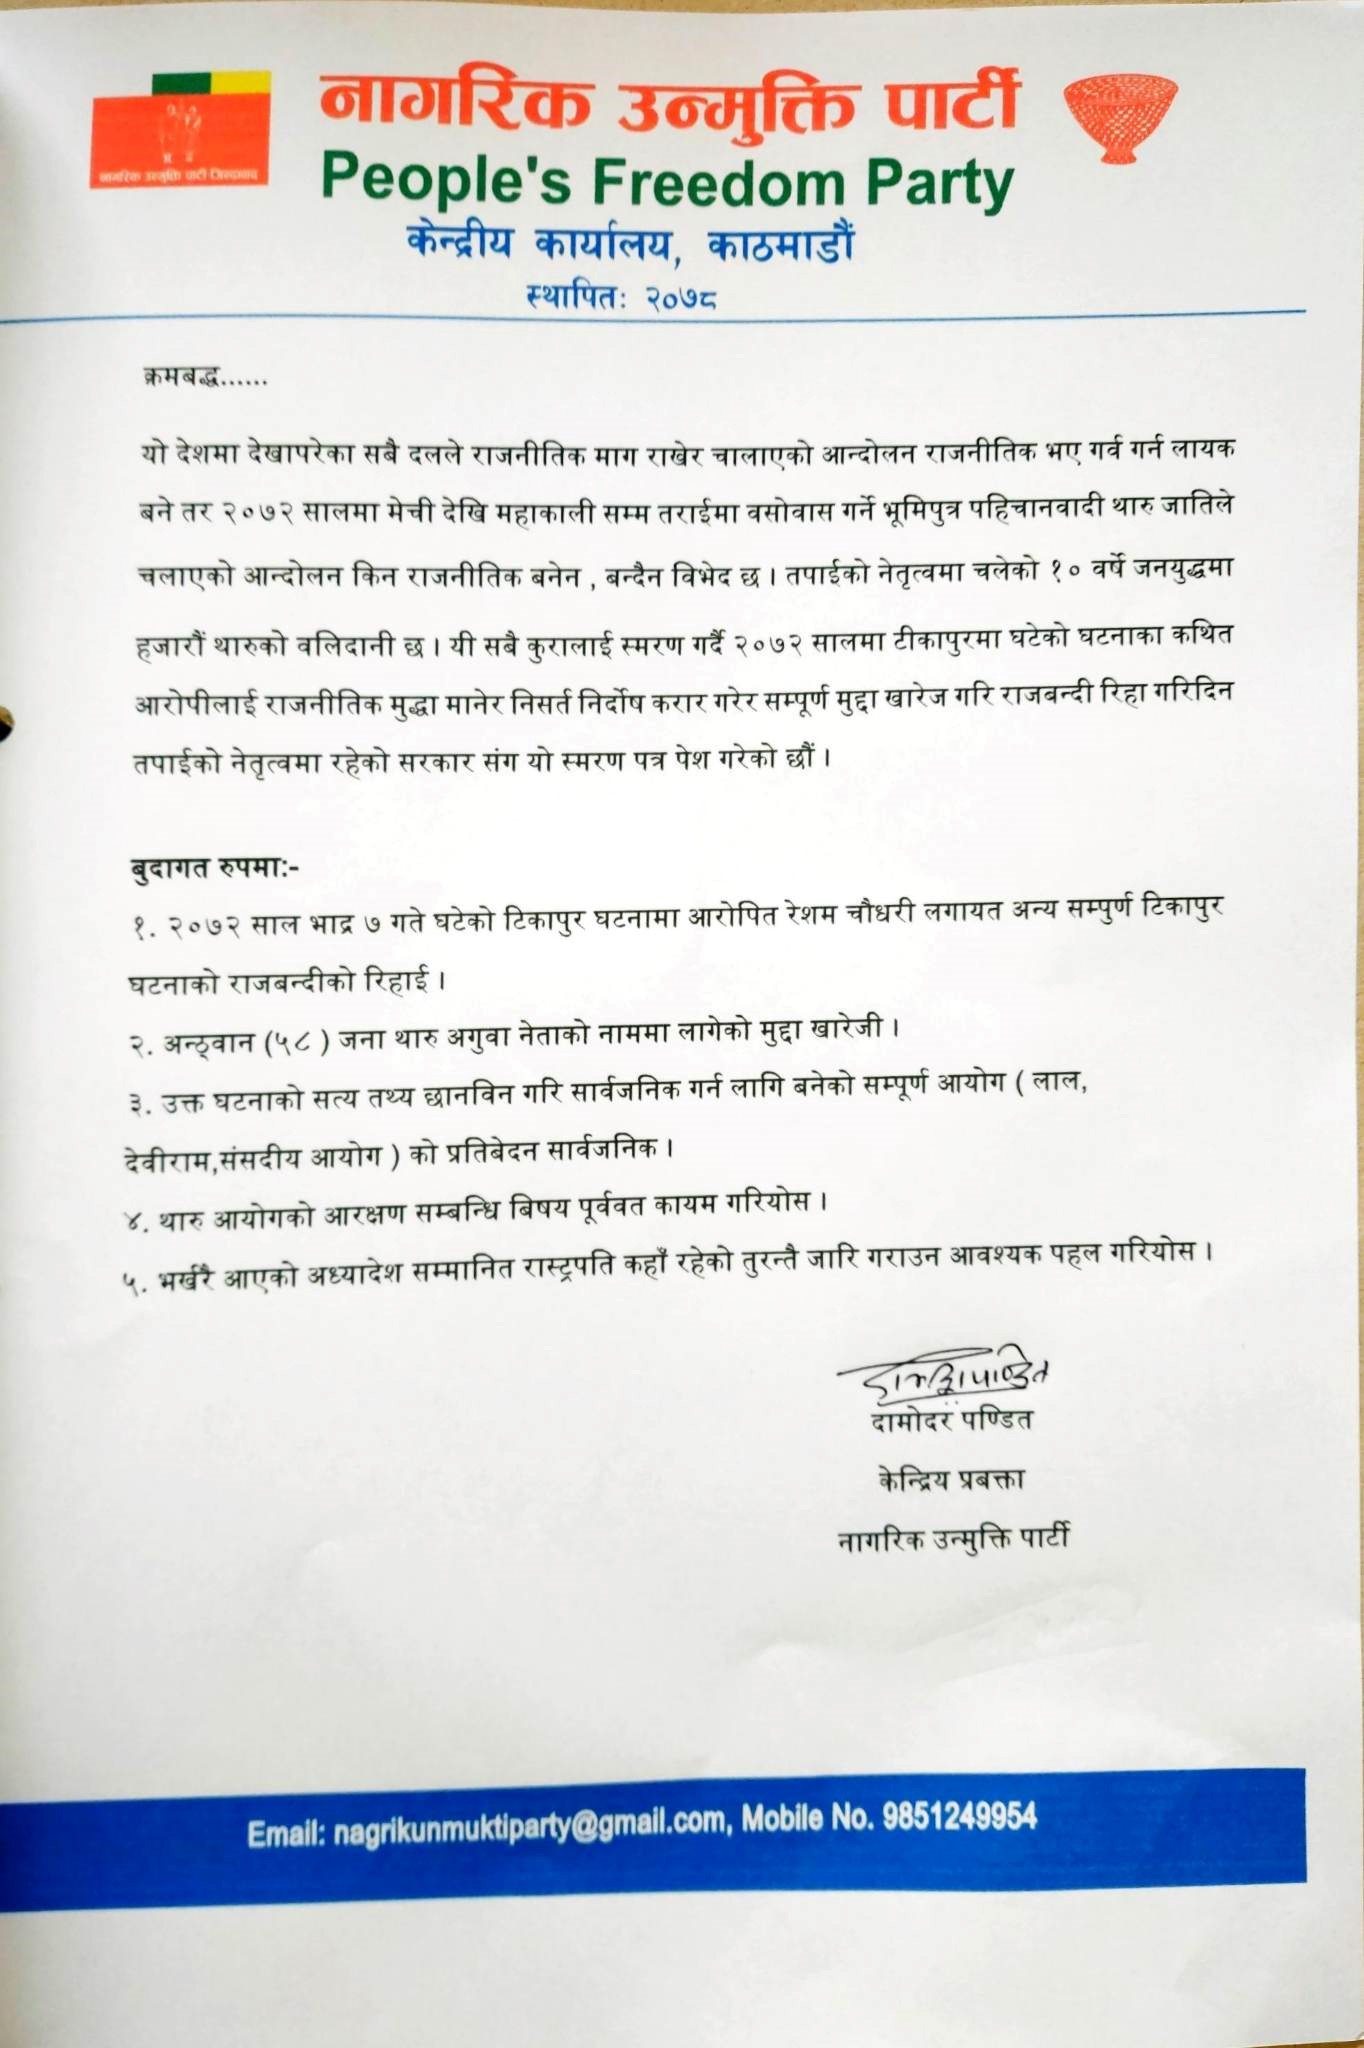 नागरिक उन्मुक्ति पार्टी जिन्दावाद
नागरिक उन्मुक्ति पार्टी
People's Freedom Party
केन्द्रीय कार्यालय, काठमाडौं
स्थापितः २०७८
क्रमबद्ध......
यो देशमा देखापरेका सबै दलले राजनीतिक माग राखेर चालाएको आन्दोलन राजनीतिक भए गर्व गर्न लायक
बने तर २०७२ सालमा मेची देखि महाकाली सम्म तराईमा वसोवास गर्ने भूमिपुत्र पहिचानवादी थारु जातिले
चलाएको आन्दोलन किन राजनीतिक बनेन , बन्दैन विभेद छ । तपाईको नेतृत्वमा चलेको १० वर्षे जनयुद्धमा
हजारौं थारुको वलिदानी छ । यी सबै कुरालाई स्मरण गर्दै २०७२ सालमा टीकापुरमा घटेको घटनाका कथित
आरोपीलाई राजनीतिक मुद्धा मानेर निसर्त निर्दोष करार गरेर सम्पूर्ण मुद्दा खारेज गरि राजबन्दी रिहा गरिदिन
तपाईको नेतृत्वमा रहेको सरकार संग यो स्मरण पत्र पेश गरेको छौं ।
बुदागत रुपमाः-
१. २०७२ साल भाद्र ७ गते घटेको टिकापुर घटनामा आरोपित रेशम चौधरी लगायत अन्य सम्पुर्ण टिकापुर
घटनाको राजबन्दीको रिहाई ।
२. अन्ठ्वान (५८ ) जना थारु अगुवा नेताको नाममा लागेको मुद्दा खारेजी ।
३. उक्त घटनाको सत्य तथ्य छानविन गरि सार्वजनिक गर्न लागि बनेको सम्पूर्ण आयोग ( लाल,
देवीराम,संसदीय आयोग ) को प्रतिबेदन सार्वजनिक ।
४. थारु आयोगको आरक्षण सम्बन्धि बिषय पूर्ववत कायम गरियोस ।
५. भर्खरै आएको अध्यादेश सम्मानित रास्ट्रपति कहाँ रहेको तुरन्तै जारि गराउन आवश्यक पहल गरियोस ।
दामोदर पण्डित
केन्द्रिय प्रबक्ता
नागरिक उन्मुक्ति पार्टी
Email: nagrikunmuktiparty@gmail.com, Mobile No. 9851249954